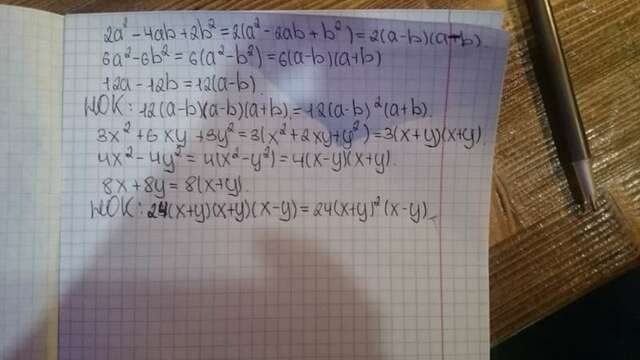 2a² - 4ab + 2b² = 2(a² - 2ab + b²) = 2(a-b)(a-b)
6a² - 6b² = 6(a² - b²) = 6(a-b)(a+b)
12a - 12b = 12(a-b)
НОК: 12(a-b)(a-b)(a+b) = 12(a-b)²(a+b).
3x² + 6xy + 3y² = 3(x² + 2xy + y²) = 3(x+y)(x+y)
4x² - 4y² = 4(x² - y²) = 4(x-y)(x+y).
8x + 8y = 8(x+y).
НОК: 24(x+y)(x+y)(x-y) = 24(x+y)²(x-y).